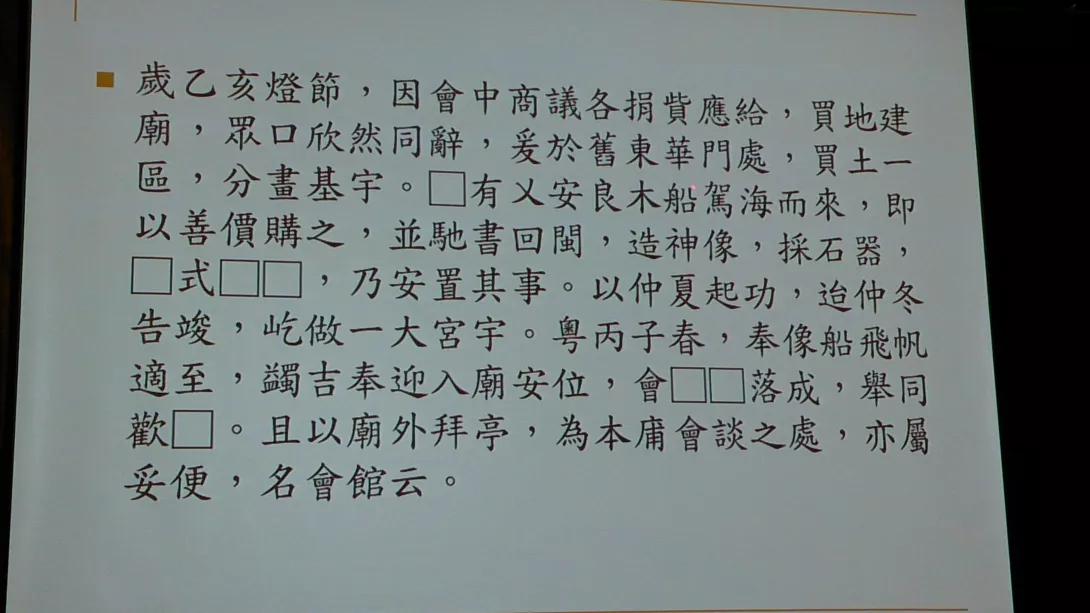 歲乙亥燈節，因會中商議各捐貲應給，買地建
廟，眾口欣然同辭，爰於舊東華門處，買土一
區，分畫基宇。□有乂安良木船駕海而來，即
以善價購之，並馳書回閩，造神像，採石器，
□式□□，乃安置其事。以仲夏起功，迨仲冬
告竣，屹做一大宮宇。粵丙子春，奉像船飛帆
適至，蠲吉奉迎入廟安位，會□□落成，舉同
歡□。且以廟外拜亭，為本庯會談之處，亦屬
妥便，名會館云。